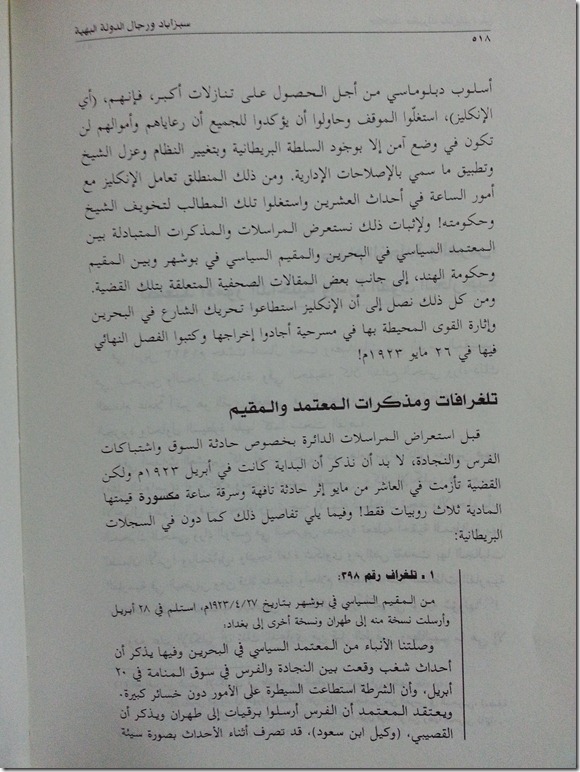 سبزاباد ورجال الدولة البهية
٥١٨
أسلوب دبلوماسي من أجل الحصول على تنازلات أكبر، فإنهم، (أي
الإنكليز)، استغلّوا الموقف وحاولوا أن يؤكدوا للجميع أن رعاياهم وأموالهم لن
تكون في وضع آمن إلا بوجود السلطة البريطانية وبتغيير النظام وعزل الشيخ
وتطبيق ما سمي بالإصلاحات الإدارية. ومن ذلك المنطلق تعامل الإنكليز مع
أمور الساعة في أحداث العشرين واستغلوا تلك المطالب لتخويف الشيخ
وحكومته! ولإثبات ذلك نستعرض المراسلات والمذكرات المتبادلة بين
المعتمد السياسي في البحرين والمقيم السياسي في بوشهر وبين المقيم
وحكومة الهند، إلى جانب بعض المقالات الصحفية المتعلقة بتلك القضية.
ومن كل ذلك نصل إلى أن الإنكليز استطاعوا تحريك الشارع في البحرين
وإثارة القوى المحيطة بها في مسرحية أجادوا إخراجها وكتبوا الفصل النهائي
فيها في ٢٦ مايو ١٩٢٣م!
تلغرافات ومذكرات المعتمد والمقيم
قبل استعراض المراسلات الدائرة بخصوص حادثة السوق واشتباكات
الفرس والنجادة، لا بد أن نذكر أن البداية كانت في أبريل ١٩٢٣م ولكن
القضية تأزمت في العاشر من مايو إثر حادثة تافهة وسرقة ساعة مكسورة قيمتها
المادية ثلاث روبيات فقط! وفيما يلي تفاصيل ذلك كما دون في السجلات
البريطانية:
١ - تلغراف رقم ٣٩٨:
من المقيم السياسي في بوشهر بتاريخ ١٩٢٣/٤/٢٧م، استلم في ٢٨ أبريل
وأرسلت نسخة منه إلى طهران ونسخة أخرى إلى بغداد:
وصلتنا الأنباء من المعتمد السياسي في البحرين وفيها يذكر أن
أحداث شغب وقعت بين النجادة والفرس في سوق المنامة في ٢٠
أبريل، وأن الشرطة استطاعت السيطرة على الأمور دون خسائر كبيرة.
ويعتقد المعتمد أن الفرس أرسلوا برقيات إلى طهران ويذكر أن
القصيبي، (وكيل ابن سعود)، قد تصرف أثناء الأحداث بصورة سيئة